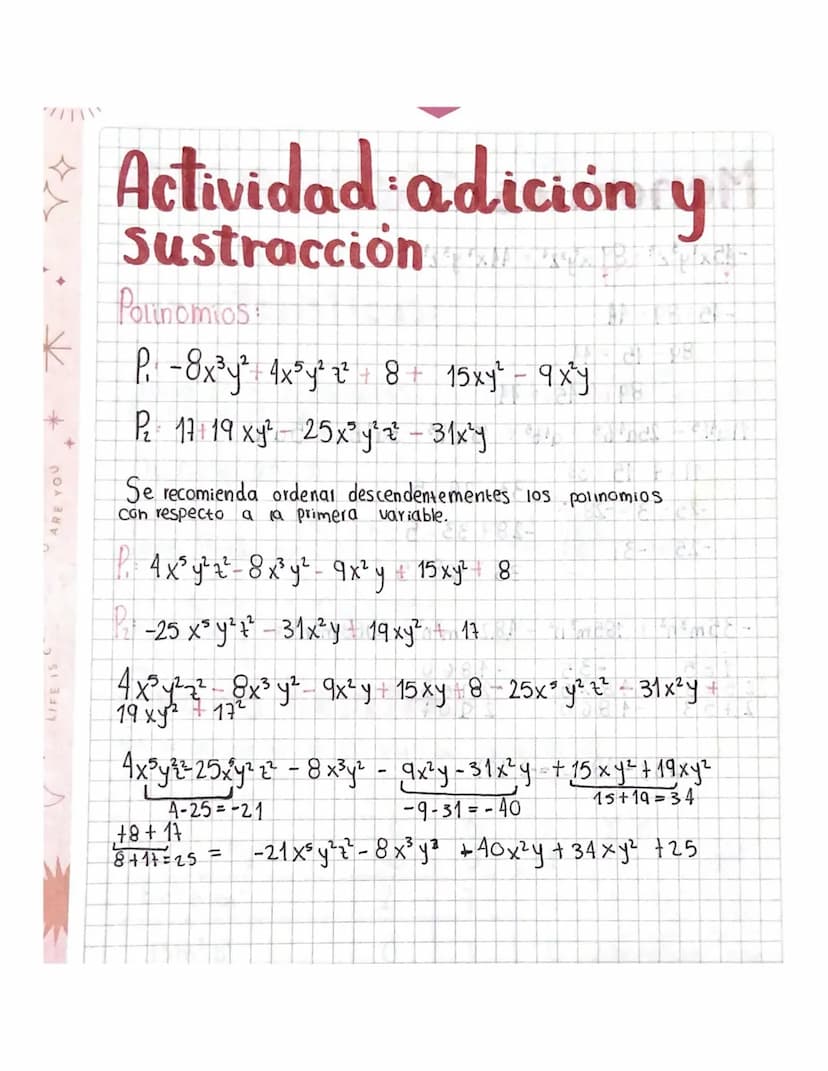 Actividad: adición y
sustracción
Polinomios:
P₁: -8x³y² + 4x⁵y²z² + 8 + 15xy² - 9x²y
P₂: 17+19 xy² - 25x⁵y²z² - 31x²y
Se recomienda ordenar descendentementes los polinomios
con respecto a la primera variable.
P₁: 4x⁵y²z² - 8x³y² - 9x²y + 15xy² + 8
P₂: -25 x⁵y²z² - 31x²y + 19xy² + 17
4x⁵y²z² - 8x³y² - 9x²y + 15xy + 8 - 25x⁵y²z² - 31x²y +
19 xy² + 17²
4x⁵y²z² - 25x⁵y²z² - 8x³y² - 9x²y - 31x²y + 15xy² + 19xy²
4-25 = -21 -9-31 = -40 15+19=34
+8 + 17
8+17=25 = -21x⁵y²z² - 8x³y² +40x²y + 34xy² +25
ARE YOU
LIFE IS